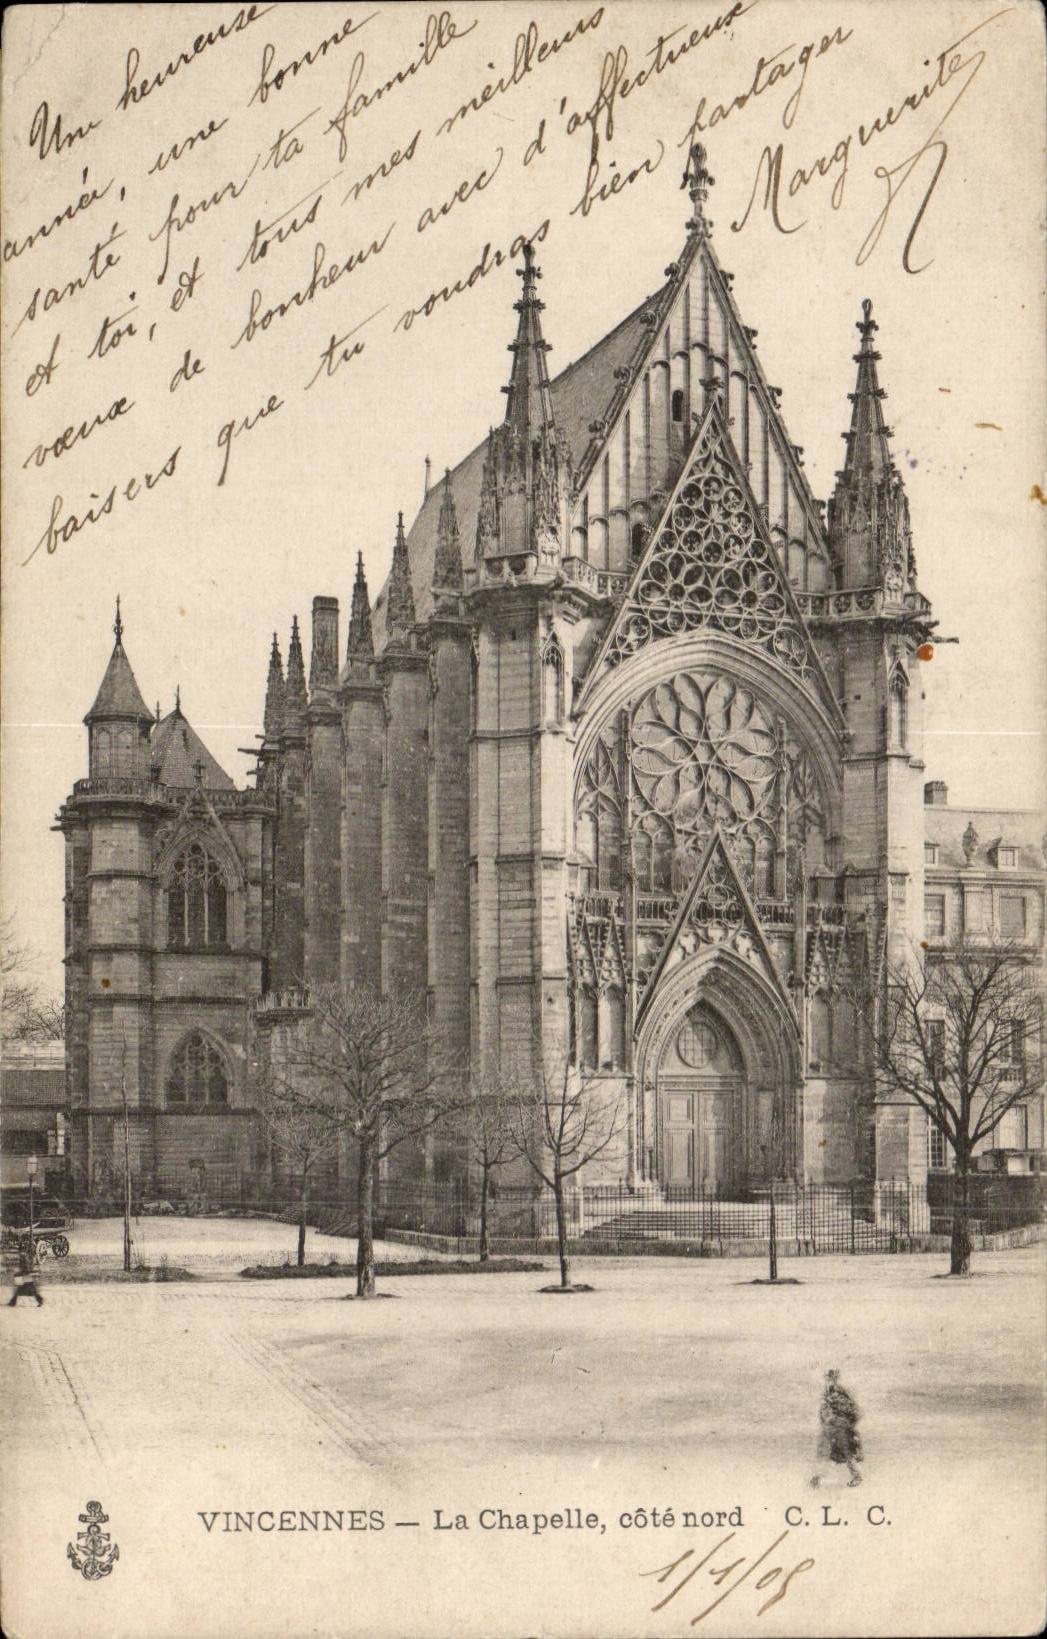 Une heureuse
année, une bonne
santé pour ta famille
et toi, et tous mes meilleurs
vœux de bonheur avec d'affectueux
baisers que tu voudras bien partager
Marguerite
VINCENNES — La Chapelle, côté nord C. L. C.
1/1/05